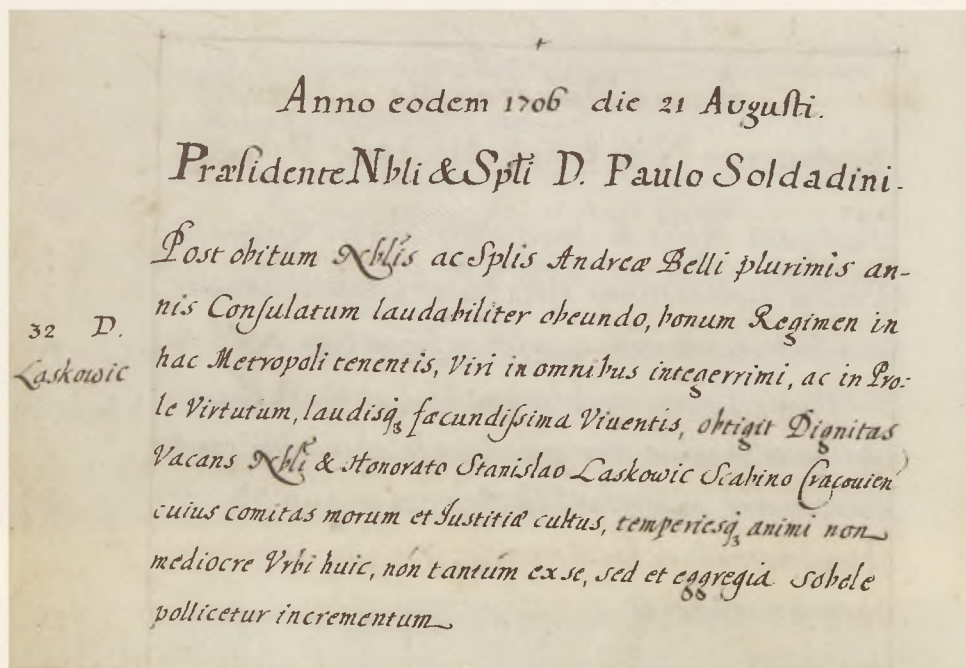 Anno eodem 1706 die 21 Augusti.
Præsidente Nbli & Sptĩ D. Paulo Soldadini.
Post obitum Nblĩs ac Splis Andreæ Belli plurimis an-
nis Consulatum laudabiliter obeundo, bonum Regimen in
32 D.
Laskowic
hac Metropoli tenentis, Viri in omnibus integerrimi, ac in Pro:
le Virtutum, laudisq̃ fæcundissima Viventis, obtigit Dignitas
Vacans Nblĩ & Honorato Stanislao Laskowic Scabino Cracouień
cuius comitas morum et Justitiæ cultus, temperiesq̃ animi non
mediocre Vrbi huic, nón tantúm ex se, sed et eggregia sobele
pollicetur incrementum